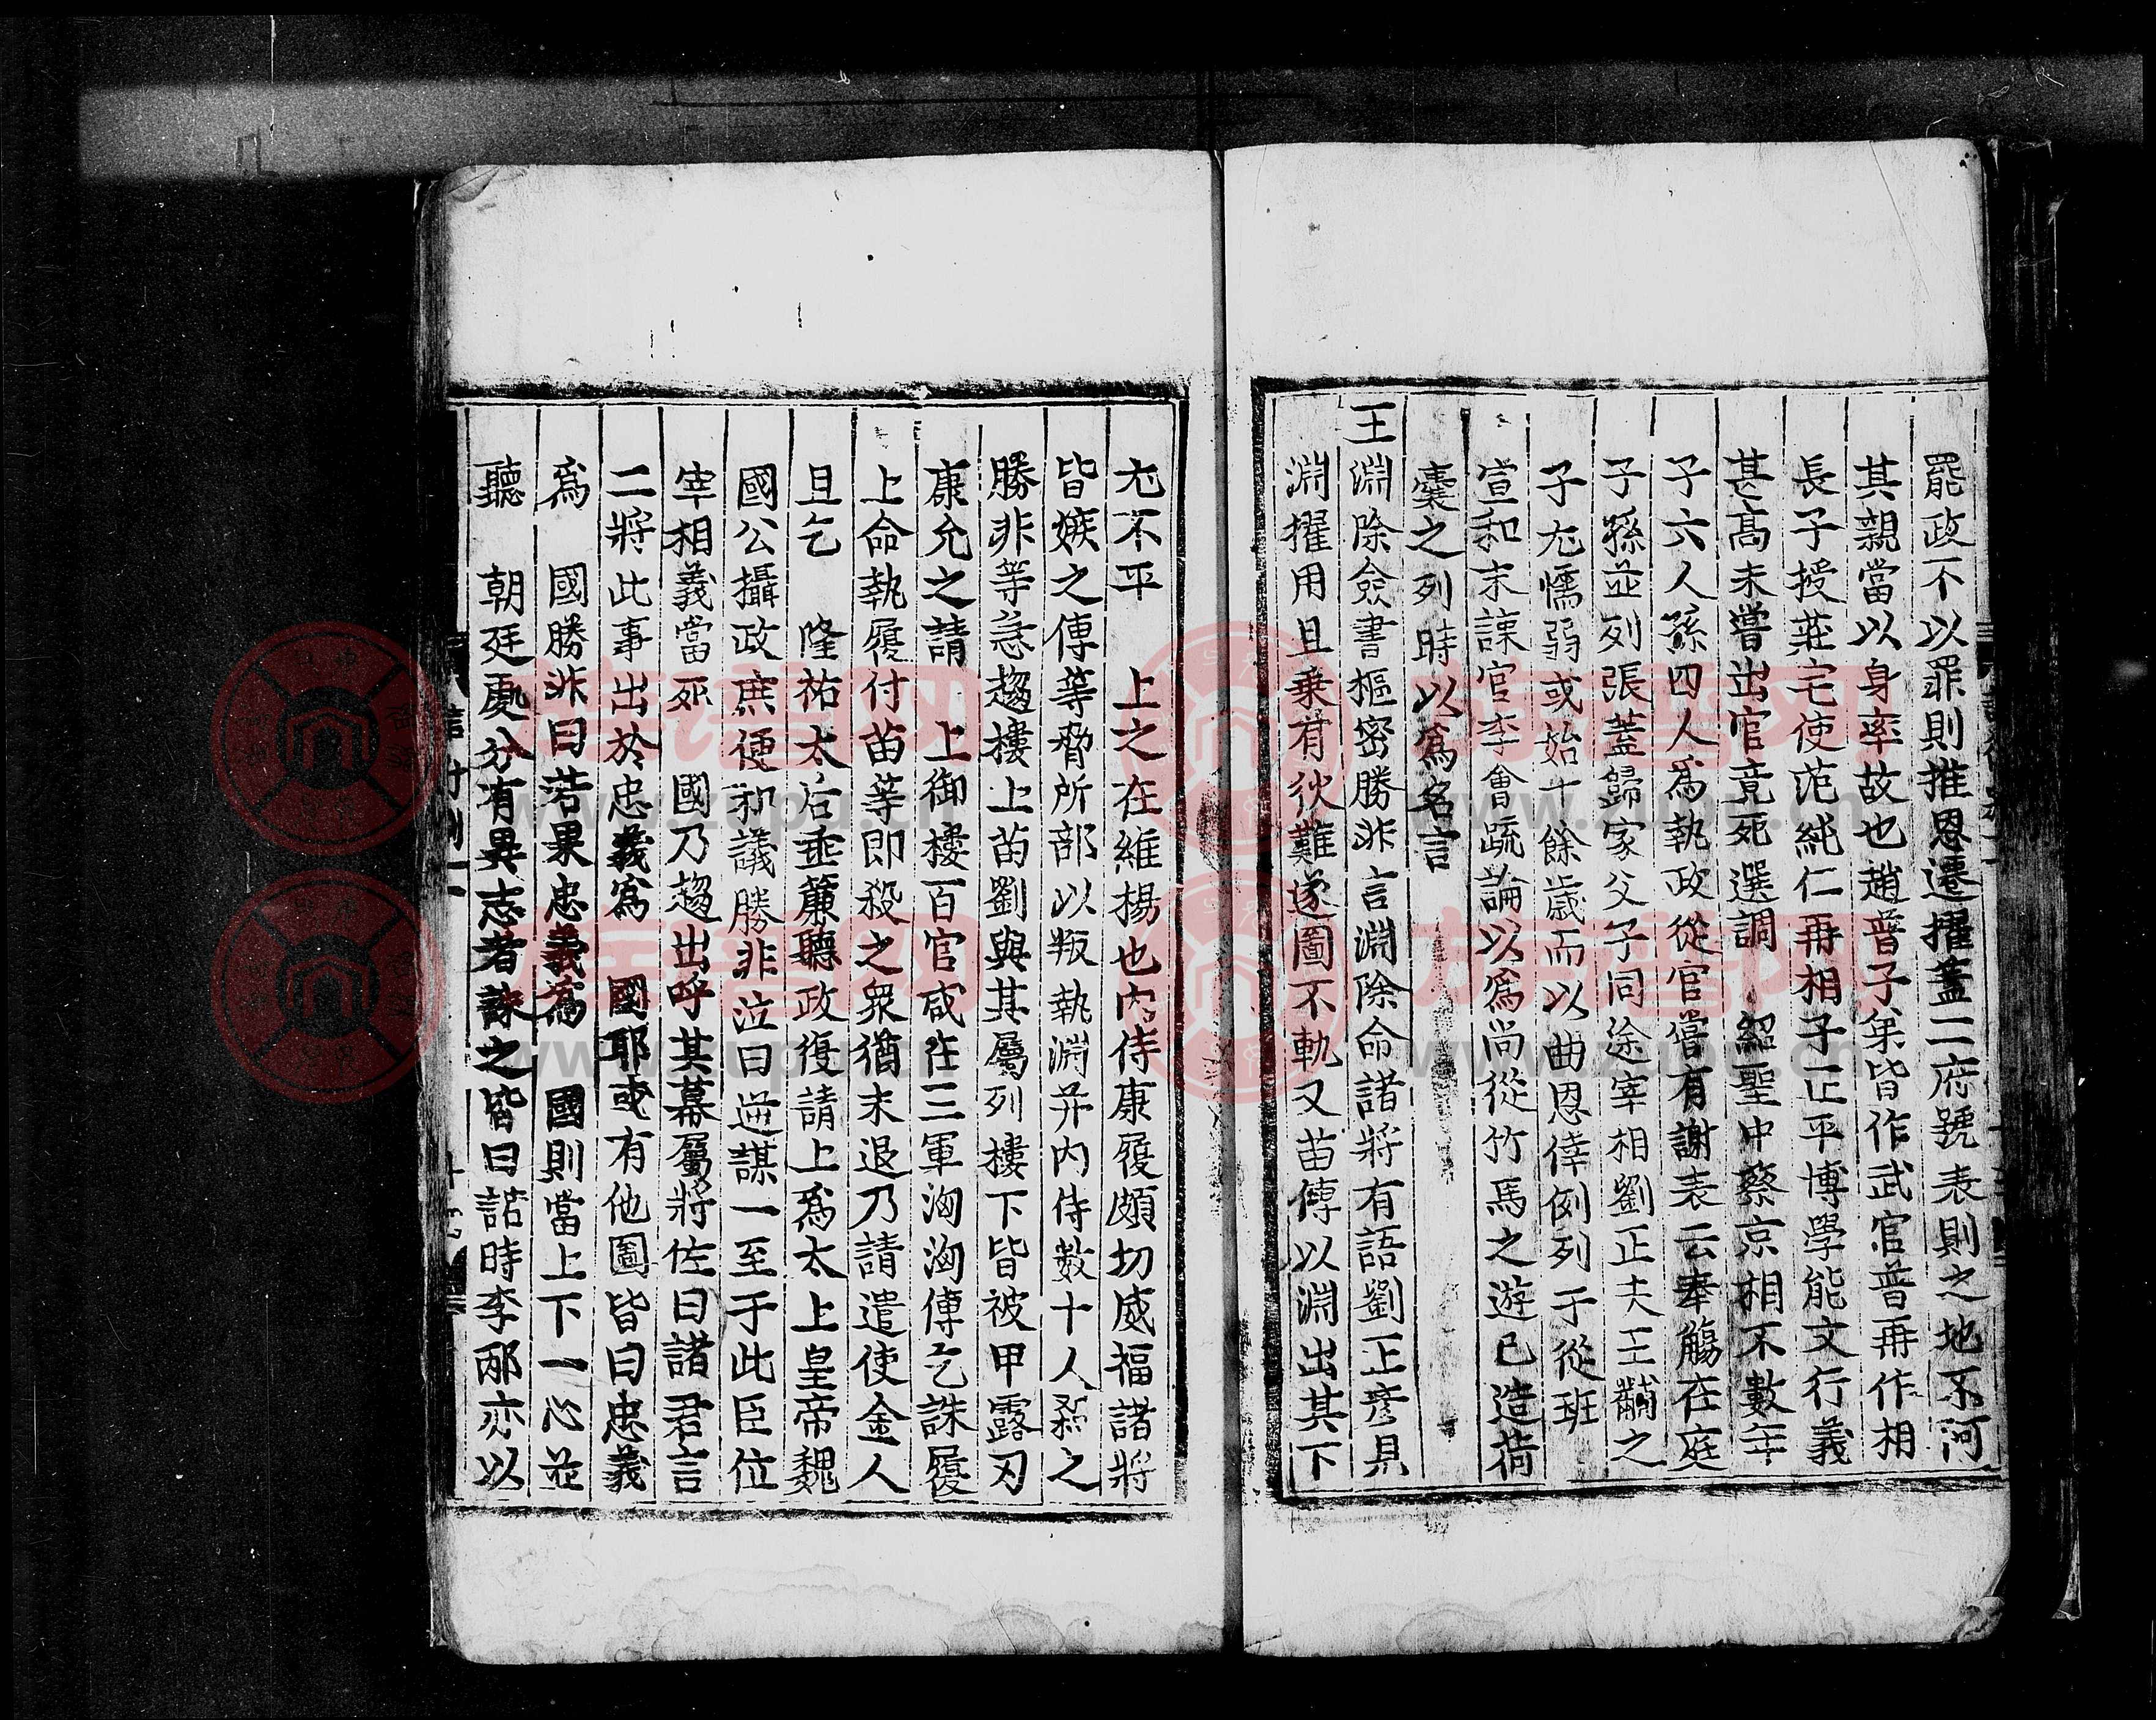 罷政不以罪則推恩遷擢蓋二府號表則之地不河
其親當以身率故也趙普子弟皆作武官普再作相
長子授莊宅使范純仁再相子正平博學能文行義
甚高未嘗出官竟死選調 紹聖中蔡京相不數年
子六人孫四人爲執政從官嘗有謝表云奉觴在庭
子孫並列張蓋歸家父子同途宰相劉正夫王黼之
子尤懦弱或始十餘歲而以曲恩倖例列于從班
宣和末諫官李會疏論以爲尚從竹馬之遊已造荷
橐之列時以爲名言
王淵除僉書樞密勝非言淵除命諸將有語劉正彥具
淵擢用且乗有狄難遂圖不軌又苗傅以淵出其下
尤不平 上之在維揚也内侍康履頗切威福諸將
皆嫉之傅等脅所部以叛執淵并内侍數十人殺之
勝非等急趨樓上苗劉與其屬列樓下皆被甲露刃
康允之請 上御樓百官咸在三軍洶洶傅乞誅履
上命執履付苗等即殺之衆猶未退乃請遣使金人
且乞 隆祐太后垂簾聽政復請上爲太上皇帝魏
國公攝政庶便和議勝非泣曰逆謀一至于此臣位
宰相義當死 國乃趨出呼其幕屬將佐曰諸君言
二將此事出於忠義爲 國耶或有他圖皆曰忠義
爲 國勝非曰若果忠義爲 國則當上下一心並
聽 朝廷處分有異志者誅之皆曰諾時李邴亦以
族譜网
www.zupu.cn